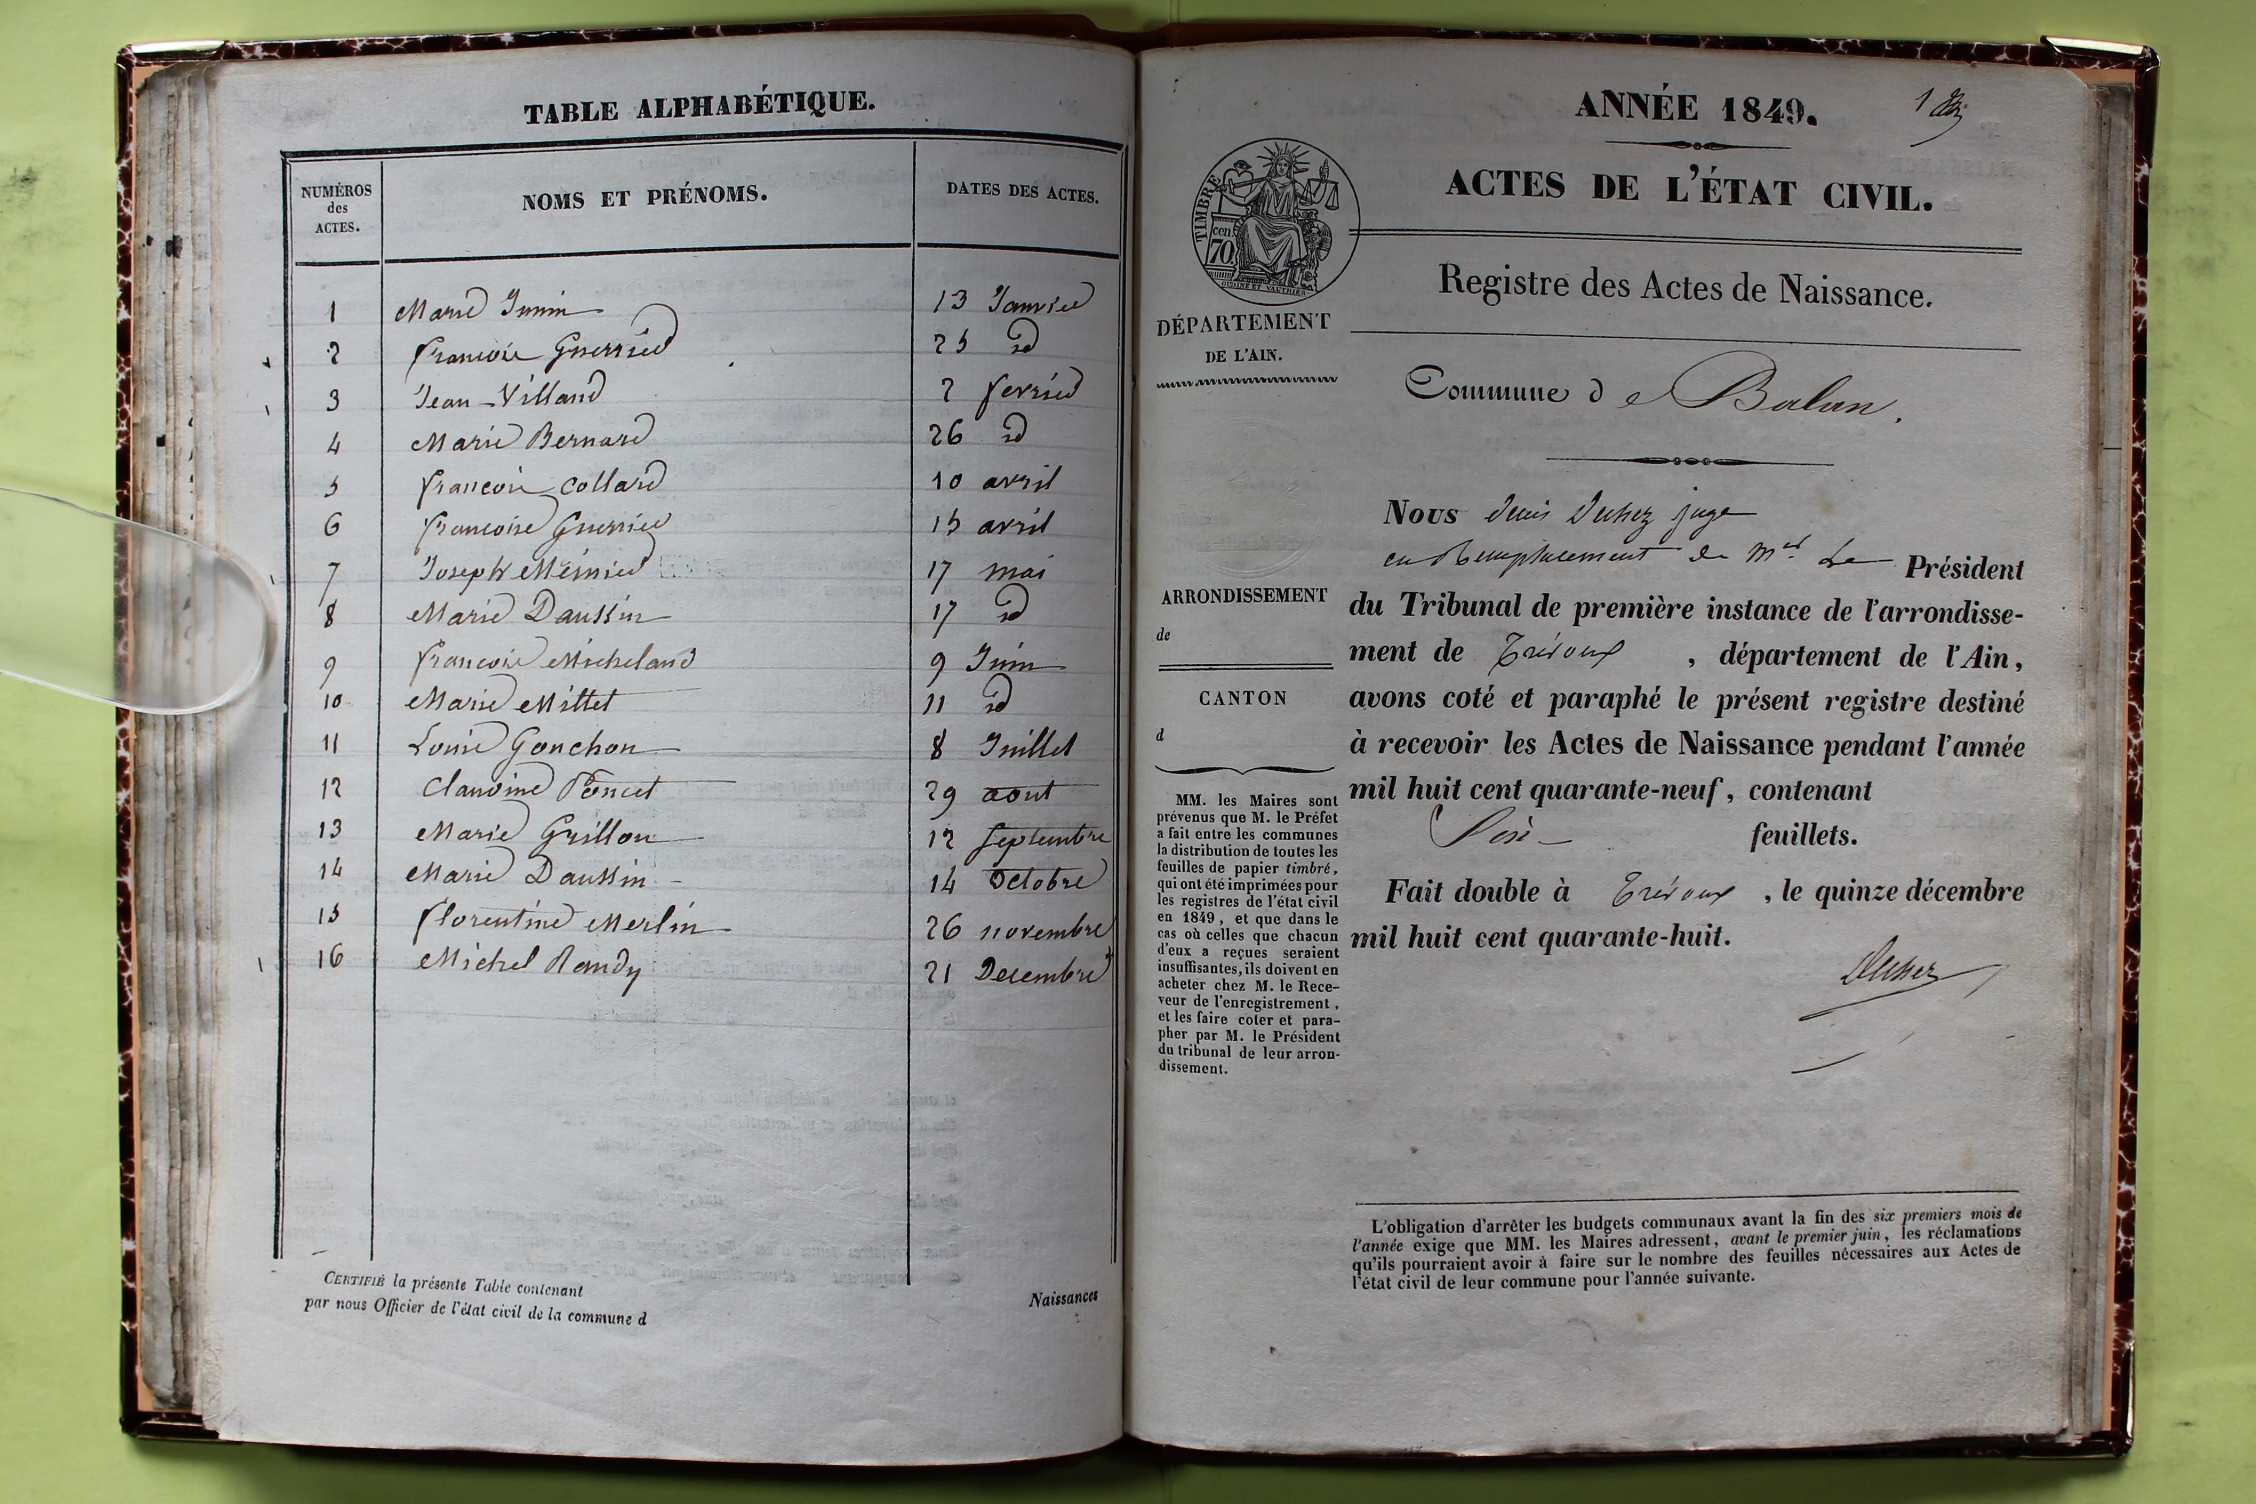 TABLE ALPHABÉTIQUE.
NUMÉROS des ACTES. NOMS ET PRÉNOMS. DATES DES ACTES.
1 Marie Junin 13 Janvier
2 françois Guerrier 25 id
3 Jean Villard 2 fevrier
4 Marie Bernard 26 id
5 françois Collard 10 avril
6 francoise Guerrier 15 avril
7 Joseph Meinier 17 mai
8 Marie Daussin 17 id
9 françois Micheland 9 Juin
10 Marie Millet 11 id
11 Louis Gonchon 8 Juillet
12 Claudine Poncet 29 aout
13 Marie Grillon 12 septembre
14 Marie Daussin 14 Octobre
15 florentine Merlin 26 novembre
16 Michel Randy 21 Decembre
CERTIFIÉ la présente Table contenant Naissances
par nous Officier de l'état civil de la commune d
ANNÉE 1849.
1
ACTES DE L'ÉTAT CIVIL.
TIMBRE
70 cen
Registre des Actes de Naissance.
DÉPARTEMENT
DE L'AIN.
Commune de Balan.
ARRONDISSEMENT
de
CANTON
d
MM. les Maires sont
prévenus que M. le Préfet
a fait entre les communes
la distribution de toutes les
feuilles de papier timbré,
qui ont été imprimées pour
les registres de l'état civil
en 1849, et que dans le
cas où celles que chacun
d'eux a reçues seraient
insuffisantes, ils doivent en
acheter chez M. le Rece-
veur de l'enregistrement,
et les faire coter et para-
pher par M. le Président
du tribunal de leur arron-
dissement.
Nous Denis Duhez juge
en Remplacement de Mr Le Président
du Tribunal de première instance de l'arrondisse-
ment de Trévoux, département de l'Ain,
avons coté et paraphé le présent registre destiné
à recevoir les Actes de Naissance pendant l'année
mil huit cent quarante-neuf, contenant
feuillets.
Fait double à Trévoux, le quinze décembre
mil huit cent quarante-huit.
Duhez
L'obligation d'arrêter les budgets communaux avant la fin des six premiers mois de
l'année exige que MM. les Maires adressent, avant le premier juin, les réclamations
qu'ils pourraient avoir à faire sur le nombre des feuilles nécessaires aux Actes de
l'état civil de leur commune pour l'année suivante.